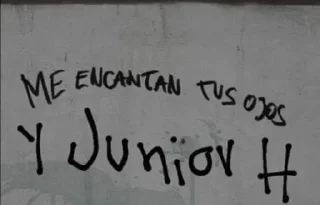 ME ENCANTAN TUS OJOS
Y JUNIOR H